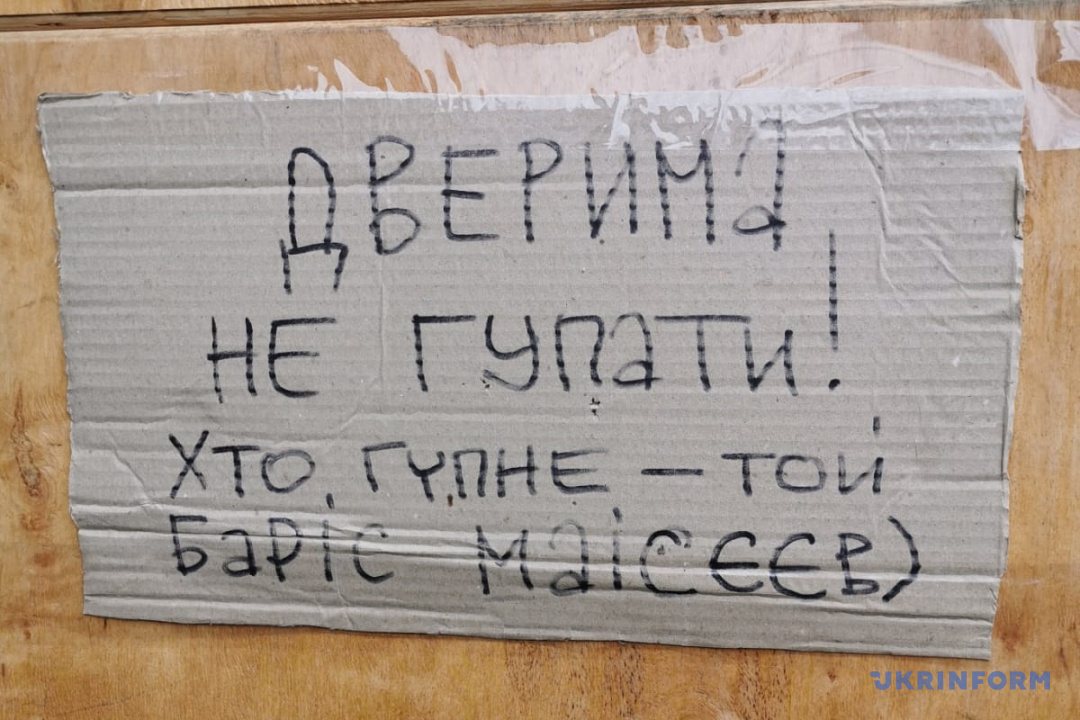 ДВЕРИМа
НЕ ГУПаТИ!
ХТО, ГУПНЕ – ТОЙ
БаРІС МаІСЄЄВ)
UKRINFORM